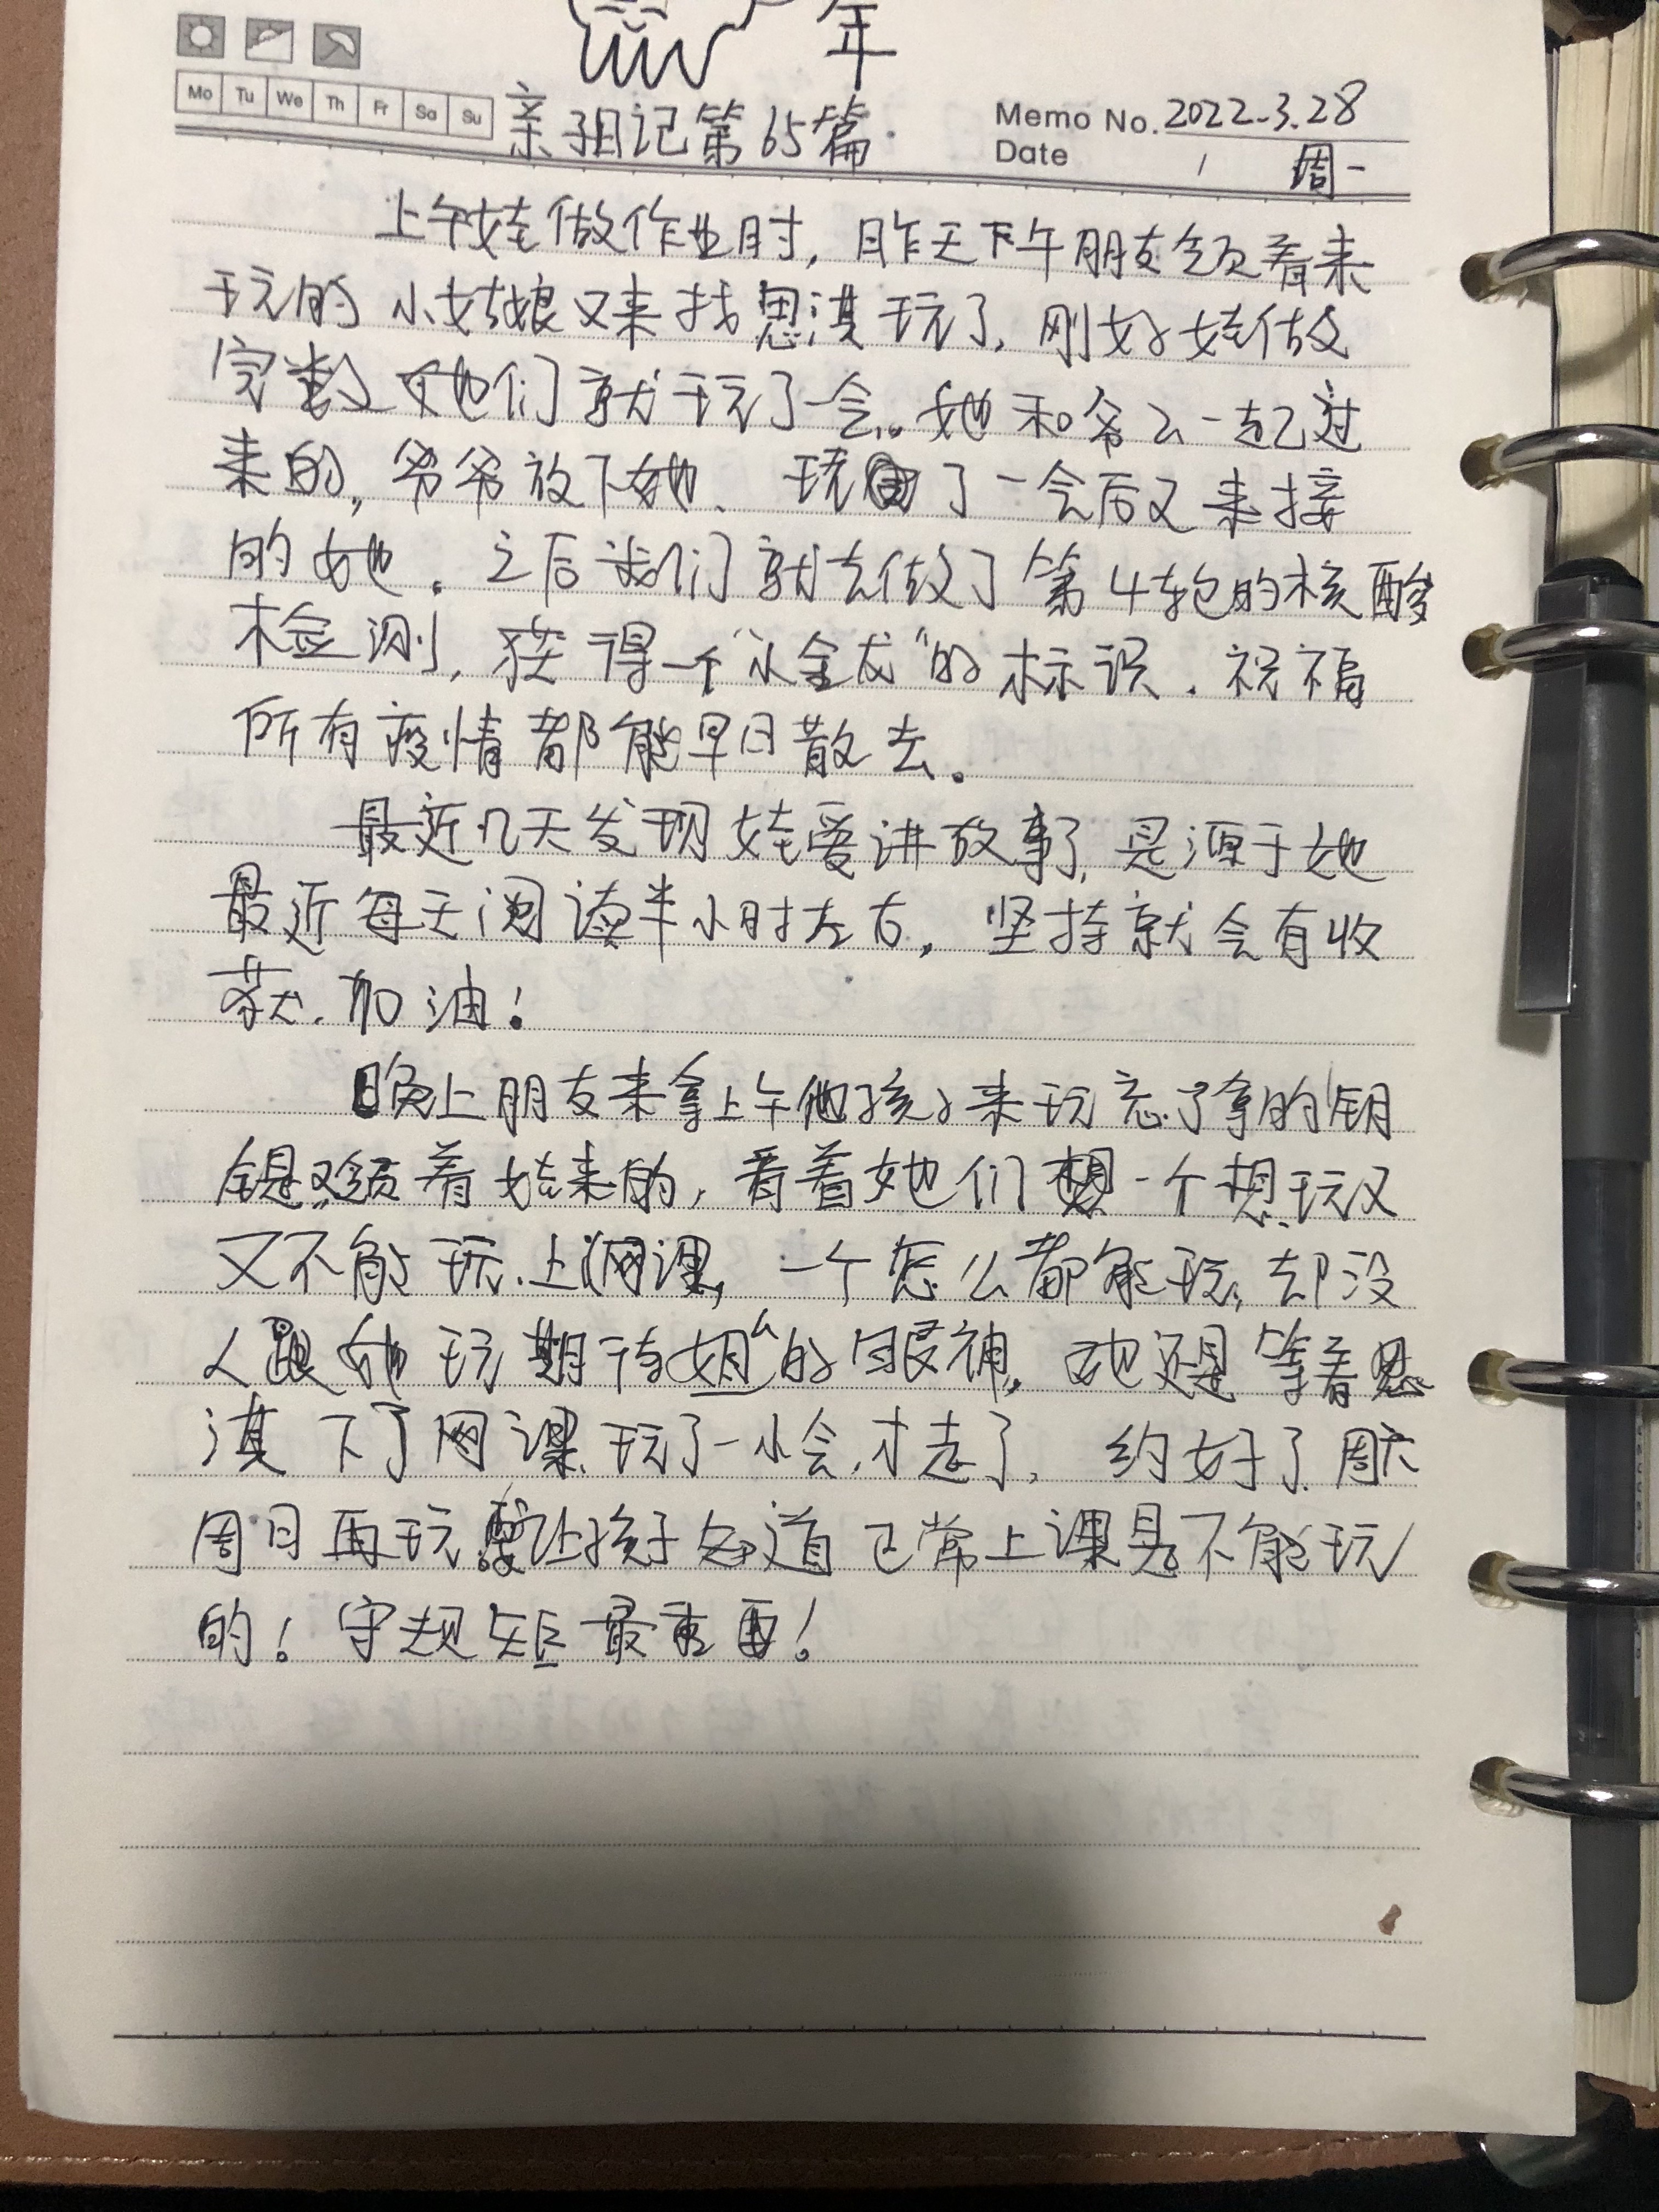 年
Mo Tu We Th Fr Sa Su
亲子日记第65篇.
Memo No. 2022.3.28
Date / 周一
上午娃做作业时,昨天下午朋友领着来
玩的小姑娘又来找思淇玩了,刚好娃做
完数 她们就玩了一会。她和爷么一起过
来的,爷爷放下她、玩了一会后又来接
的她。之后我们就去做了第4轮的核酸
检测,获得一个“小金龙”的标识.祝福
所有疫情都能早日散去。
最近几天发现娃爱讲故事了,是源于她
最近每天阅读半小时左右,坚持就会有收
获.加油!
晚上朋友来拿上午他孩子来玩忘了拿的钥
匙又领着娃来的,看着她们一个想玩又
又不能玩.上网课,一个怎么都能玩,却没
人跟她玩期待姐么的眼神。她还是等着思
淇下了网课,玩了一小会,才走了,约好了周六
周日再玩.要让孩子知道正常上课是不能玩
的!守规矩最重要!